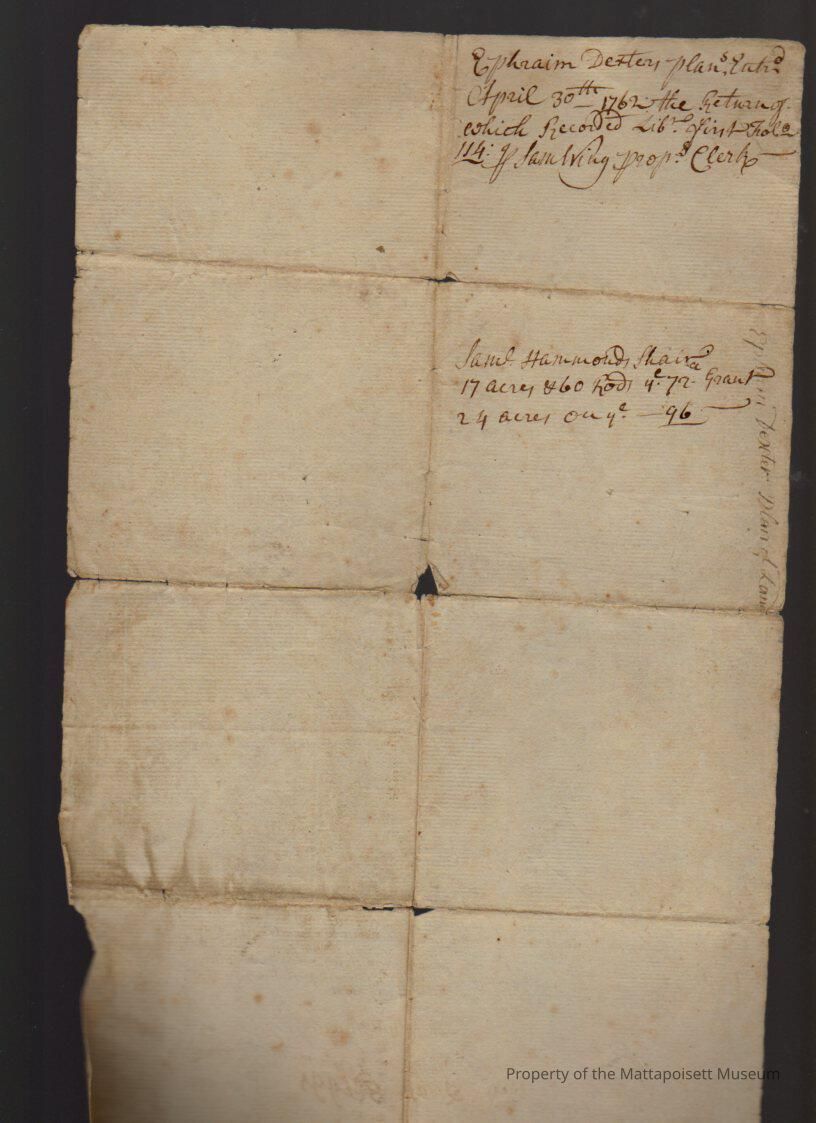 Ephraim Dexters plans, Entrd
April 30th 1762 the Return of
which Recorded Libr first folo
114: pr Saml Wing props Clerk
Saml Hammonds Shair
17 acres & 60 Rods ye 72 Grant
24 acres on ye — 96
Ephraim Dexter Plan of Land
Property of the Mattapoisett Museum